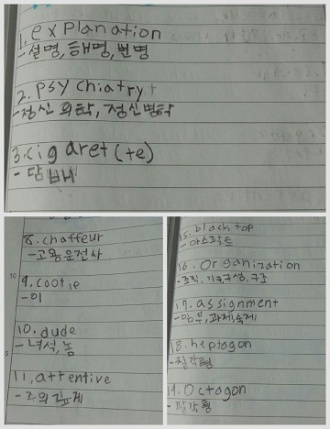 1. explanation
-설명, 해명, 변명
2. psychiatry
-정신 의학, 정신병학
3. cigaret(te)
- 담배
8. chaffeur
-고용운전사
9. cootie
-이
10. dude
-녀석, 놈
11. attentive
-주의깊게
15. blacktop
-아스팔트
16. Organization
-조직, 기구, 구성, 구조
17. assignment
-임무, 과제, 숙제
18. heptagon
-칠각형
19. Octagon
-팔각형